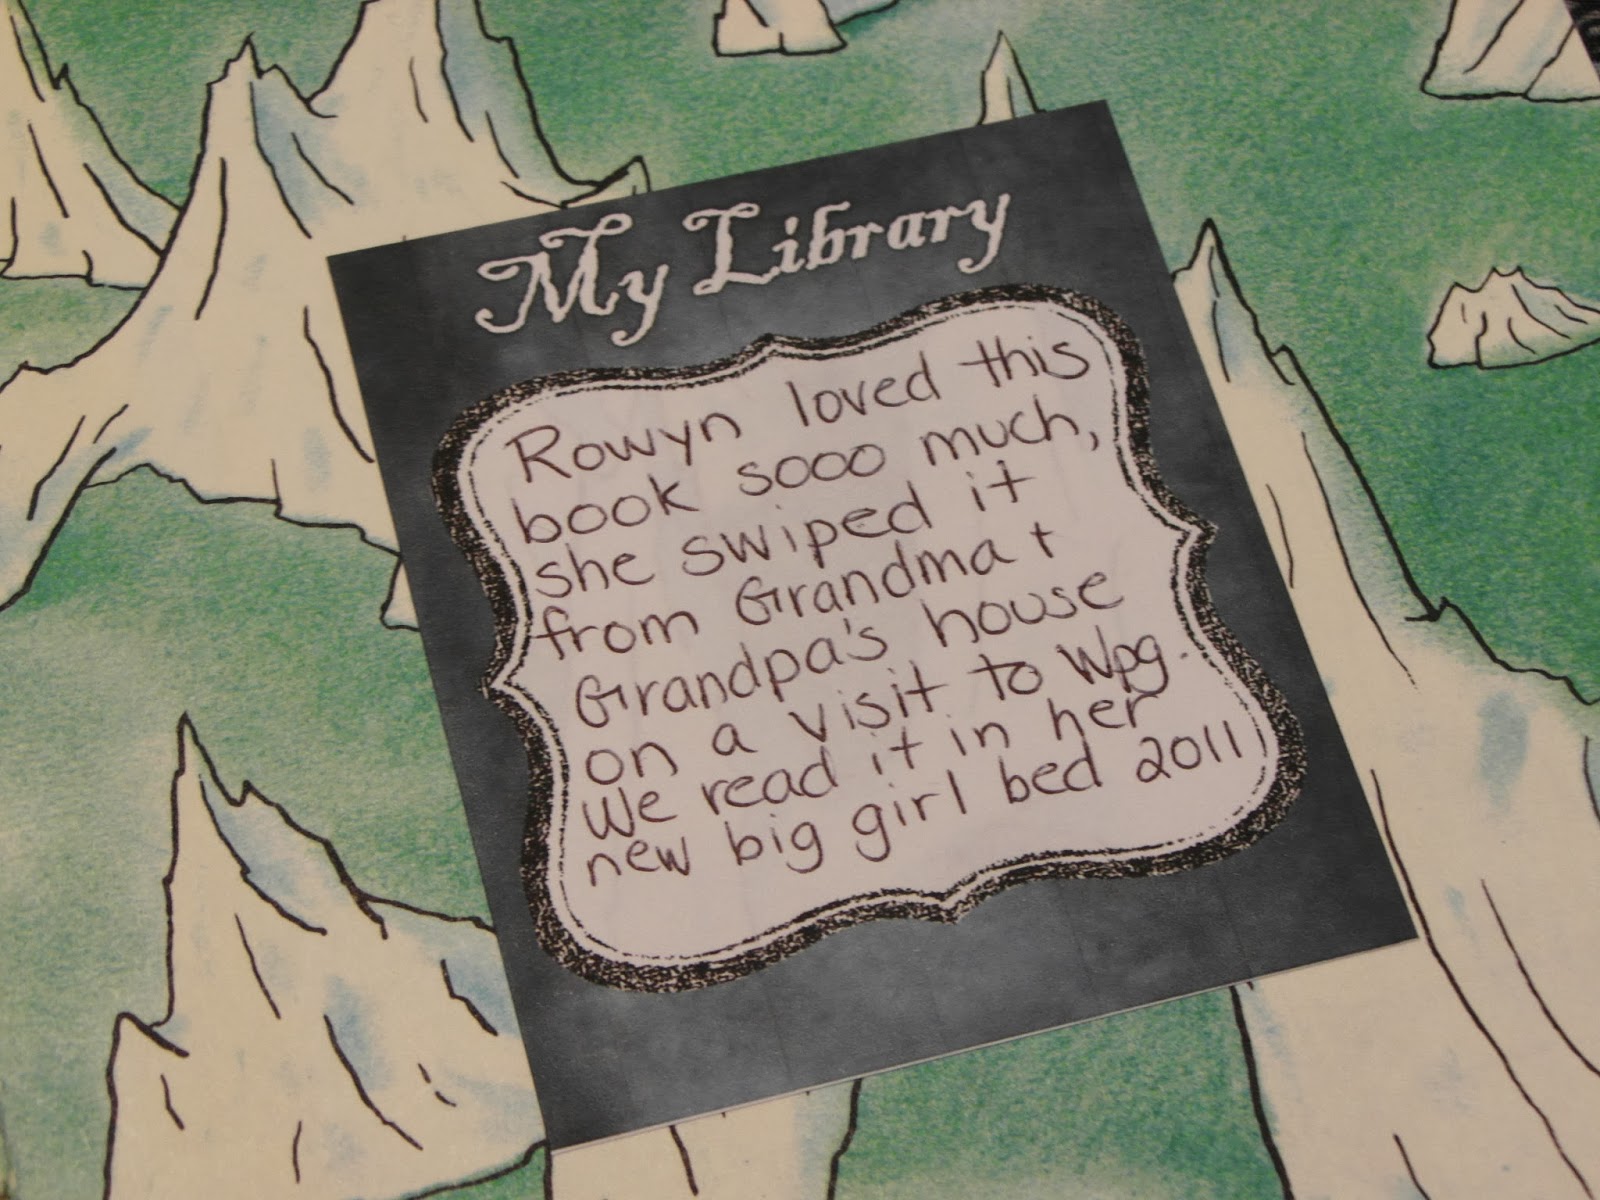 My Library
Rowyn loved this
book sooo much,
she swiped it
from Grandma +
Grandpa's house
on a visit to Wpg.
We read it in her
new big girl bed 2011